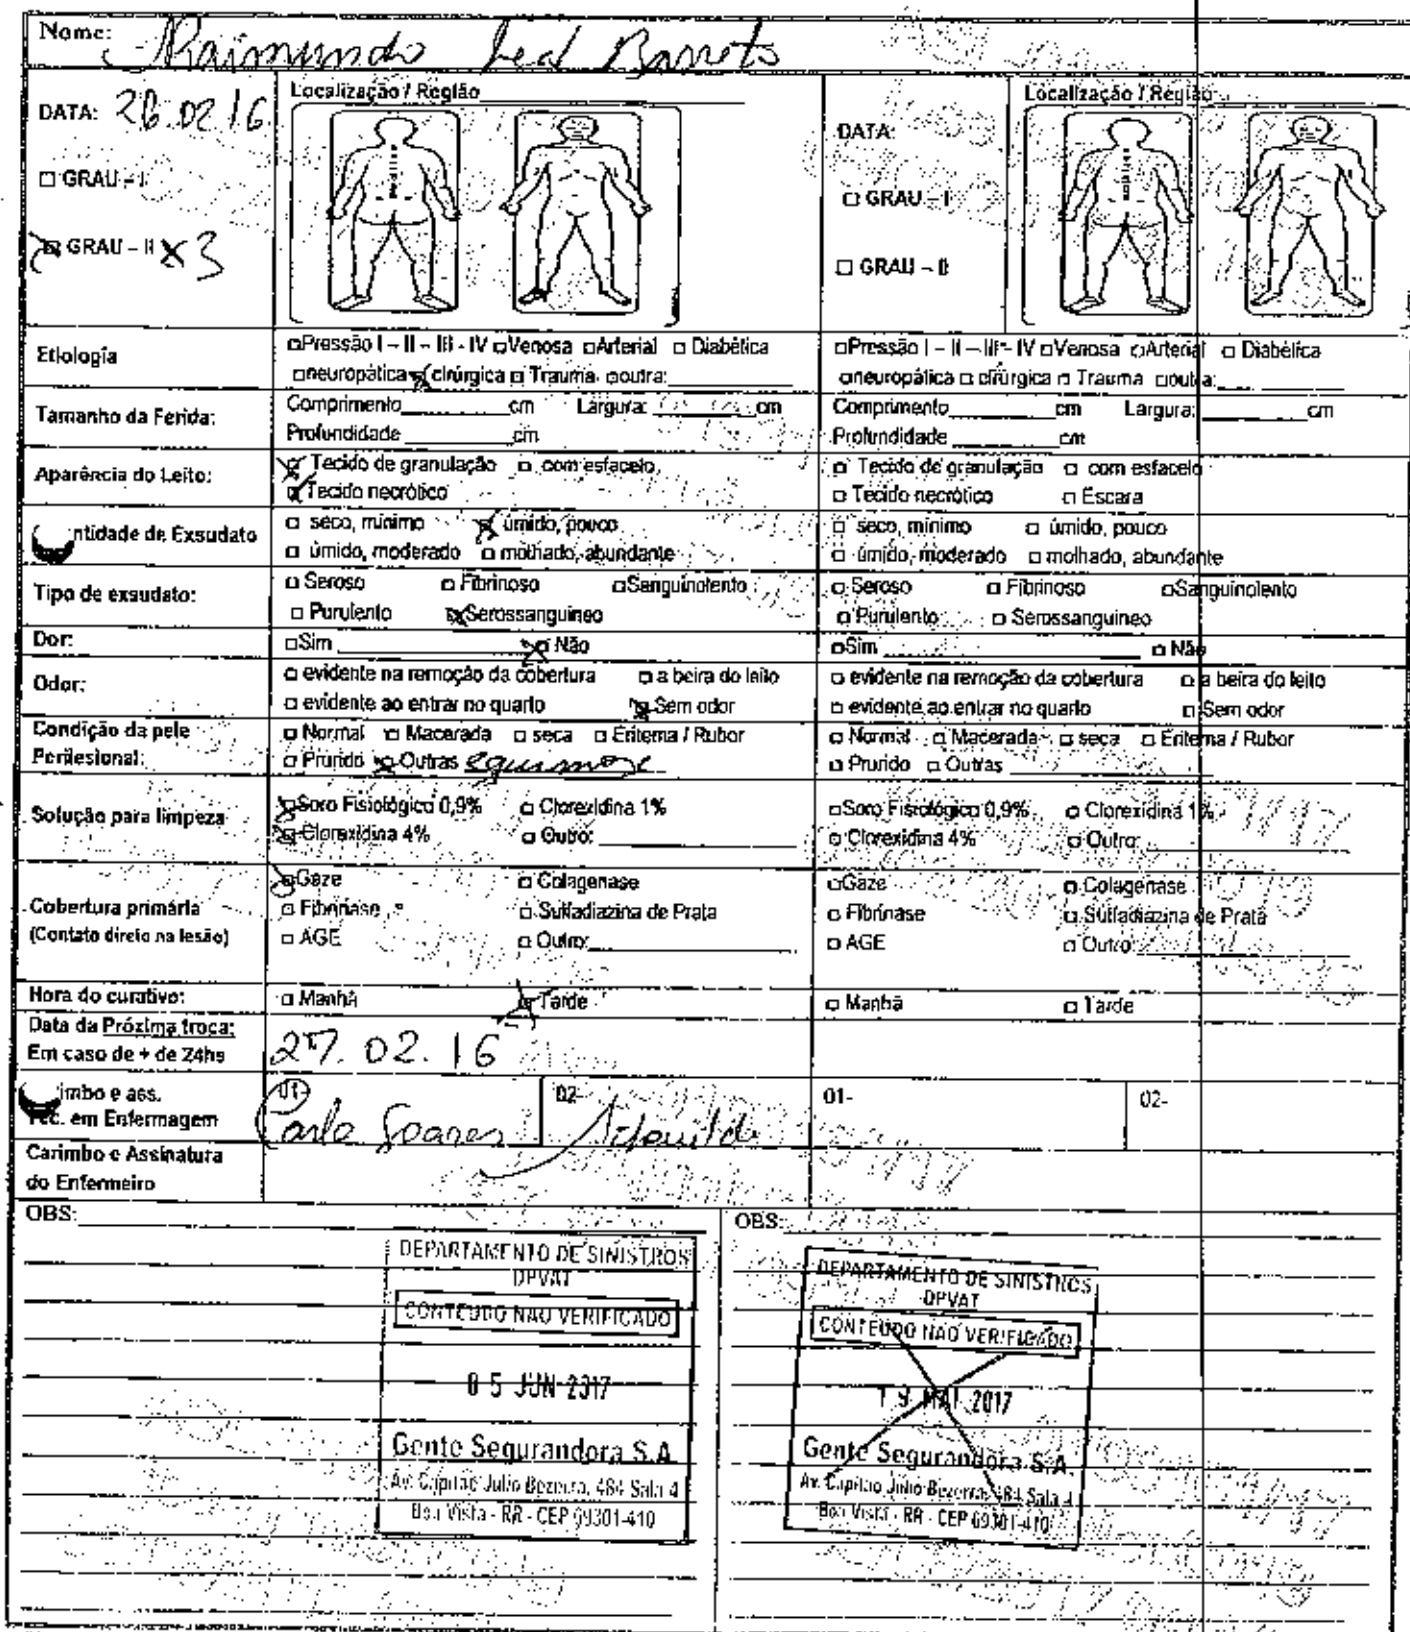 Nome: Raimundo Leal Barreto
DATA: 26.02.16
Localização / Região
DATA:
Localização / Região
□ GRAU – I
□ GRAU – I
☒ GRAU – II X 3
□ GRAU – II
Etiologia
□Pressão I – II – III - IV □Venosa □Arterial □ Diabética
□neuropática ☒cirúrgica □ Trauma □outra:
□Pressão I – II – III - IV □Venosa □Arterial □ Diabética
□neuropática □ cirúrgica □ Trauma □outra:
Tamanho da Ferida:
Comprimento________cm Largura:________cm
Profundidade________cm
Comprimento________cm Largura:________cm
Profundidade________cm
Aparência do Leito:
☒ Tecido de granulação □ com esfacelo
☒ Tecido necrótico
□ Tecido de granulação □ com esfacelo
□ Tecido necrótico □ Escara
ntidade de Exsudato
□ seco, mínimo ☒ úmido, pouco
□ úmido, moderado □ molhado, abundante
□ seco, mínimo □ úmido, pouco
□ úmido, moderado □ molhado, abundante
Tipo de exsudato:
□ Seroso □ Fibrinoso □Sanguinolento
□ Purulento ☒Serossanguineo
□ Seroso □ Fibrinoso □Sanguinolento
□ Purulento □ Serossanguineo
Dor:
□Sim ________ ☒ Não
□Sim ________ □ Não
Odor:
□ evidente na remoção da cobertura □ a beira do leito
□ evidente ao entrar no quarto ☒ Sem odor
□ evidente na remoção da cobertura □ a beira do leito
□ evidente ao entrar no quarto □ Sem odor
Condição da pele
Perilesional:
□ Normal □ Macerada □ seca □ Eritema / Rubor
□ Prurido ☒ Outras equimose
□ Normal □ Macerada □ seca □ Eritema / Rubor
□ Prurido □ Outras
Solução para limpeza
☒Soro Fisiológico 0,9% □ Clorexidina 1%
☒ Clorexidina 4% □ Outro:
□Soro Fisiológico 0,9% □ Clorexidina 1%
□ Clorexidina 4% □ Outro:
Cobertura primária
(Contato direto na lesão)
☒Gaze □ Colagenase
□ Fibrinase □ Sulfadiazina de Prata
□ AGE □ Outro:
□Gaze □ Colagenase
□ Fibrinase □ Sulfadiazina de Prata
□ AGE □ Outro:
Hora do curativo:
□ Manhã ☒ Tarde
□ Manhã □ Tarde
Data da Próxima troca:
Em caso de + de 24hs
27.02.16
imbo e ass.
Tec. em Enfermagem
01- Carla Soares
02-
01-
02-
Carimbo e Assinatura
do Enfermeiro
OBS:
OBS:
DEPARTAMENTO DE SINISTROS
DPVAT
CONTEUDO NAO VERIFICADO
05 JUN 2017
Gente Segurandora S.A
Av. Capitao Julio Bezerra, 484 Sala 4
Boa Vista - RR - CEP 69301-410
DEPARTAMENTO DE SINISTROS
DPVAT
CONTEUDO NAO VERIFICADO
19 MAI 2017
Gente Segurandora S.A
Av. Capitao Julio Bezerra, 484 Sala 4
Boa Vista - RR - CEP 69301-410